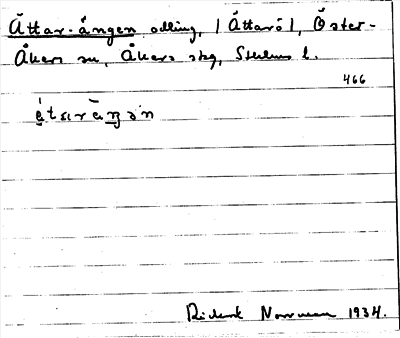 Ättar-ängen odling, (Ättarö), Öster-
Åkers sn, Åkers skg, Sthlms l.
466
Rickard Norrman 1934.